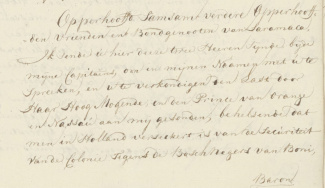 Opperhooft Samsam verdere Opperhoof-
den Vrienden en Bondgenooten van Saramaca.
Ik sende hier deese twee Heeren Synde bijde
mijne Capitains, om in mijnen Naamen met U te
Spreeken, en U te verkondigen een Last door
Haar Hoog Mogende en den Prince van Orange
en Nassau aan mij gesonden, behelsende dat
men in Holland verseekert is van de Securiteit
van de Colonie Tegens de Bosch Negers van Boni,
Baron